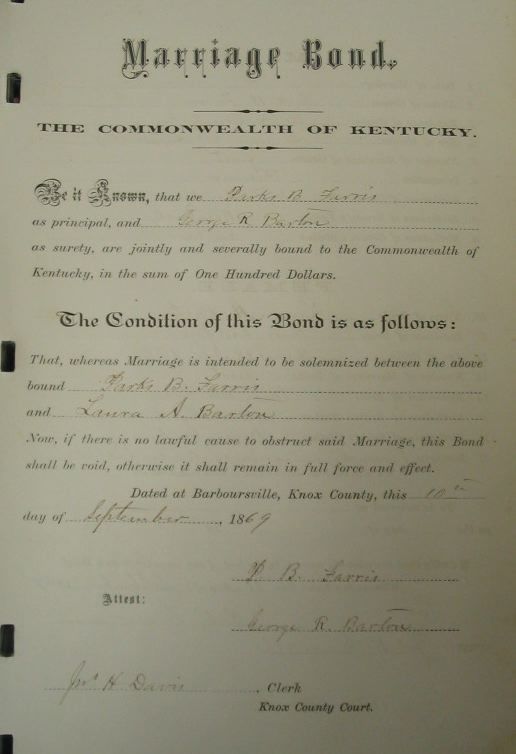 Marriage Bond.
THE COMMONWEALTH OF KENTUCKY.
Be it Known, that we Parks B. Farris
as principal, and George R. Barton
as surety, are jointly and severally bound to the Commonwealth of
Kentucky, in the sum of One Hundred Dollars.
The Condition of this Bond is as follows:
That, whereas Marriage is intended to be solemnized between the above
bound Parks B. Farris
and Laura A. Barton
Now, if there is no lawful cause to obstruct said Marriage, this Bond
shall be void, otherwise it shall remain in full force and effect.
Dated at Barboursville, Knox County, this 10th
day of September, 1869
P. B. Farris
Attest:
George R. Barton
H Davis, Clerk
Knox County Court.